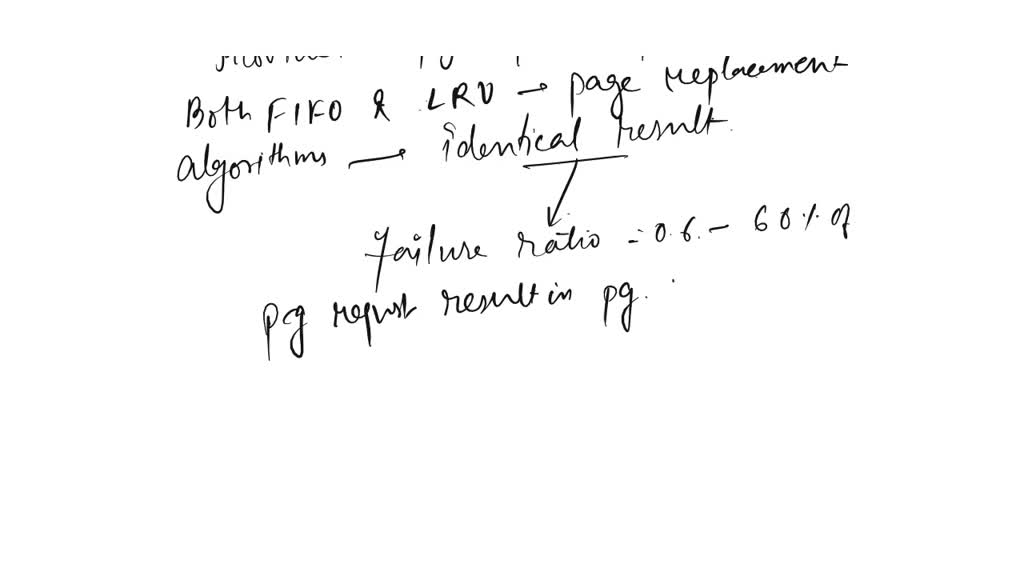 Both FIFO & LRU → page replacement
algorithms → identical result.
failure ratio = 0.6. - 60% of
pg requst result in pg.